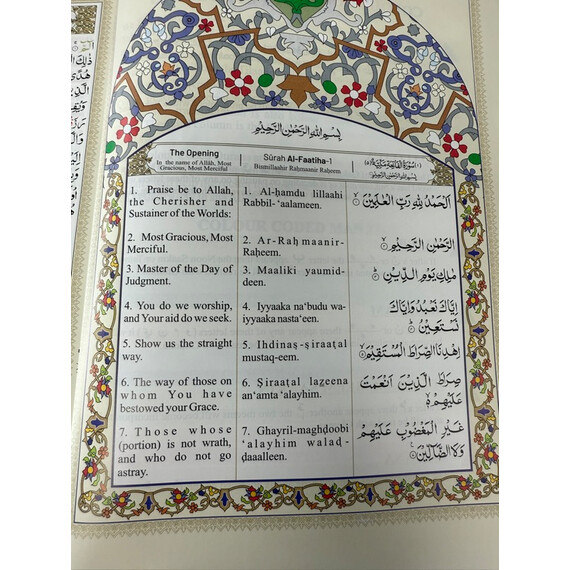 بِسْمِ اللهِ الرَّحْمٰنِ الرَّحِيْمِ
The Opening
In the name of Allâh, Most
Gracious, Most Merciful
Sûrah Al-Faatiha-1
Bismillaahir Rahmaanir Raheem
بِسْمِ اللهِ الرَّحْمٰنِ الرَّحِيْمِ
1. Praise be to Allah,
the Cherisher and
Sustainer of the Worlds:
1. Al-ḥamdu lillaahi
Rabbil-‘aalameen.
اَلْحَمْدُ لِلّٰهِ رَبِّ الْعٰلَمِيْنَ
2. Most Gracious, Most
Merciful.
2. Ar-Raḥmaanir-
Raḥeem.
الرَّحْمٰنِ الرَّحِيْمِ
3. Master of the Day of
Judgment.
3. Maaliki yaumid-
deen.
مٰلِكِ يَوْمِ الدِّيْنِ
4. You do we worship,
and Your aid do we seek.
4. Iyyaaka na‘budu wa-
iyyaaka nasta‘een.
اِيَّاكَ نَعْبُدُ وَاِيَّاكَ
نَسْتَعِيْنُ
5. Show us the straight
way.
5. Ihdinaṣ-ṣiraaṭal
mustaq-eem.
اِهْدِنَا الصِّرَاطَ الْمُسْتَقِيْمَ
6. The way of those on
whom You have
bestowed your Grace.
6. Ṣiraaṭal lazeena
an‘amta ‘alayhim.
صِرَاطَ الَّذِيْنَ اَنْعَمْتَ
عَلَيْهِمْ
7. Those whose
(portion) is not wrath,
and who do not go
astray.
7. Ghayril-maghḍoobi
‘alayhim walaḍ-
ḍaaalleen.
غَيْرِ الْمَغْضُوْبِ عَلَيْهِمْ
وَلَا الضَّآلِّيْنَ